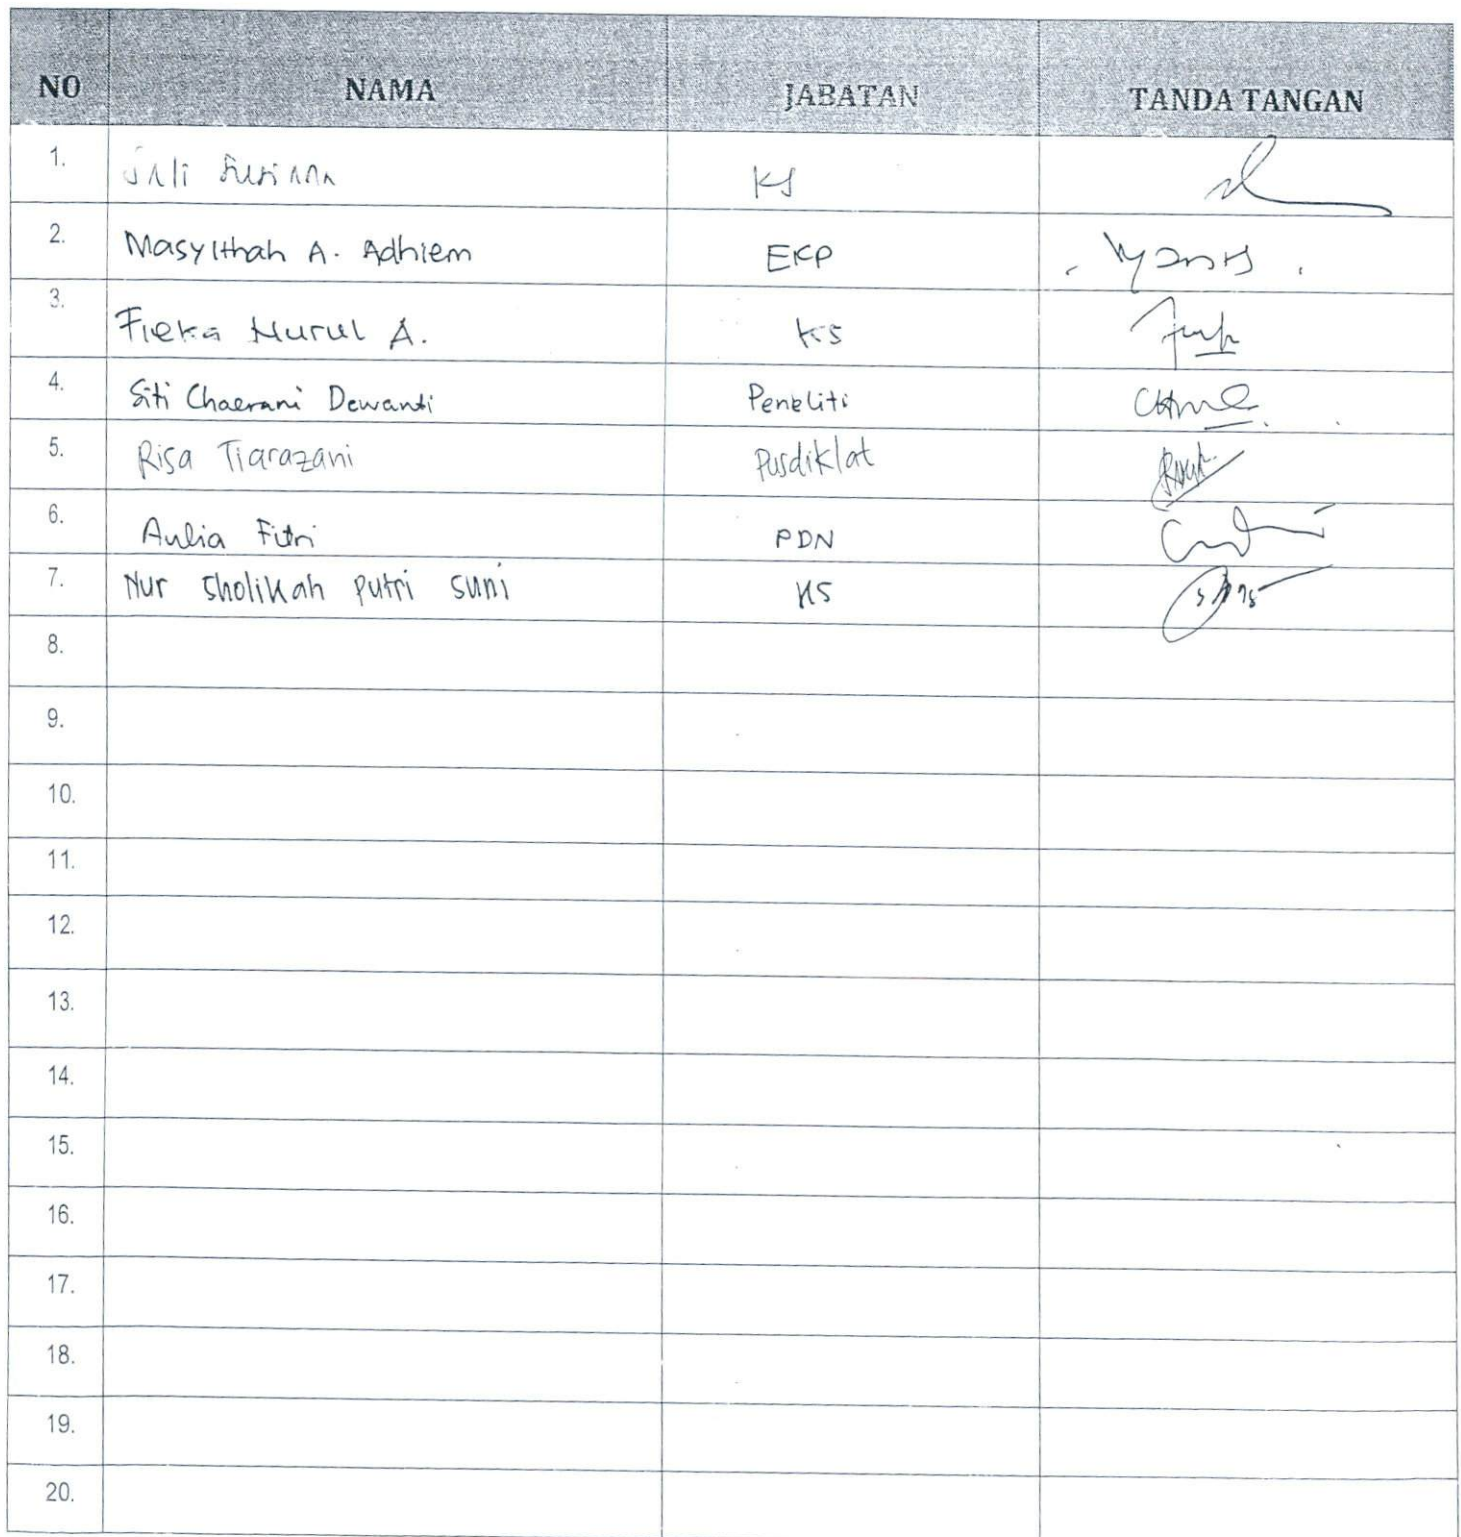 NO NAMA JABATAN TANDA TANGAN
1. Sali Susiana KS
2. Masyithah A. Adhiem EKP
3. Fieka Nurul A. KS
4. Siti Chaerani Dewanti Peneliti
5. Risa Tiarazani Pusdiklat
6. Aulia Fitri PDN
7. Nur Sholikah Putri Suni KS
8.
9.
10.
11.
12.
13.
14.
15.
16.
17.
18.
19.
20.